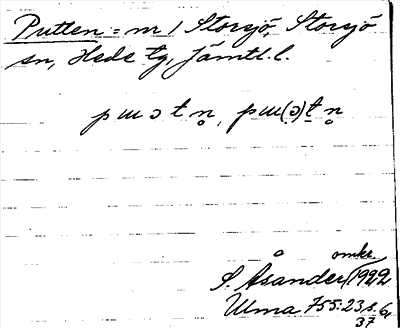 Putten = m / Storsjö, Storsjö
sn, Hede tg, Jämtl. l.
p ɯ ɔ t n̥, p ɯ (ə) t n̥
omkr.
S. Åsander / 1922
Ulma 755:23, s. 6
37